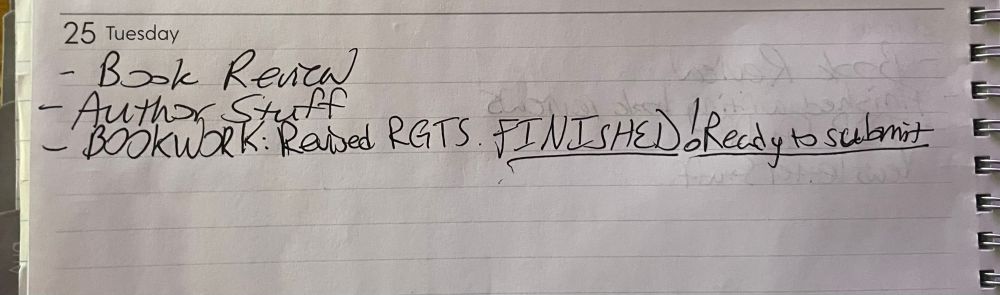 25 Tuesday
- Book Review
- Author Stuff
- BOOKWORK: Revised RGTS. FINISHED! Ready to submit